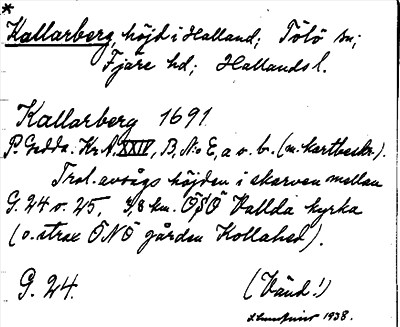 *
Kallarberg, höjd i Halland; Tölö sn;
Fjäre hd; Hallands l.
Kallarberg 1691.
P. Gedda. Kr. A. XXIV, B, No E, a o. b. (m. kartbeskr.).
Trol. avsågs höjden i skarven mellan
G. 24 o. 25, 3,8 km. ÖSÖ Vallda kyrka
(o. strax ÖNÖ gården Kollahed).
G. 24.
(Vänd!)
1938.